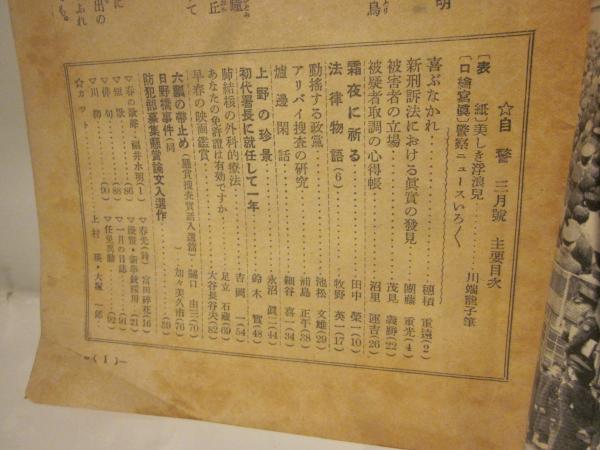 明
鳥
瞳
丘
に
出の
ふれ
も。
☆自警 三月號 主要目次
〔表 紙…美しき浮浪兒……川端龍子筆
〔口繪寫眞…警察ニュースいろ〱
喜ぶなかれ……穗積 重遠(2)
新刑訴法における眞實の發見……團藤 重光(4)
被害者の立場……茂見 義勝(22)
被疑者取調の心得帳……沼里 運吉(26)
霜夜に祈る……田中 榮一(10)
法律物語(6)……牧野 英一(17)
動搖する政黨……池松 文雄(29)
アリバイ搜査の研究……浦島 正平(38)
爐邊閑話……細谷 喜一(34)
上野の珍景……永沼 眞二(44)
初代署長に就任して一年……鈴木 實(48)
肺結核の外科的療法……吉岡 一(54)
あなたの免許證は有効ですか……足立 石藏(69)
早春の映画鑑賞……大谷長谷夫(82)
六瓢の帶止め(懸賞搜査實話入選篇)樋口 由三(70)
日野機事件(同)……加々美久市(76)
防犯部募集懸賞論文入選作……(59)
▽春の歌謠…福井水明(1)
▽春光(詩)…富田碎花(16)
▽短歌……(88)
▽俳句……(90)
▽一月の日誌……(91)
▽川柳
▽任免異動……(92)
☆カット……上村 瑛・大塚 一郎
(1)